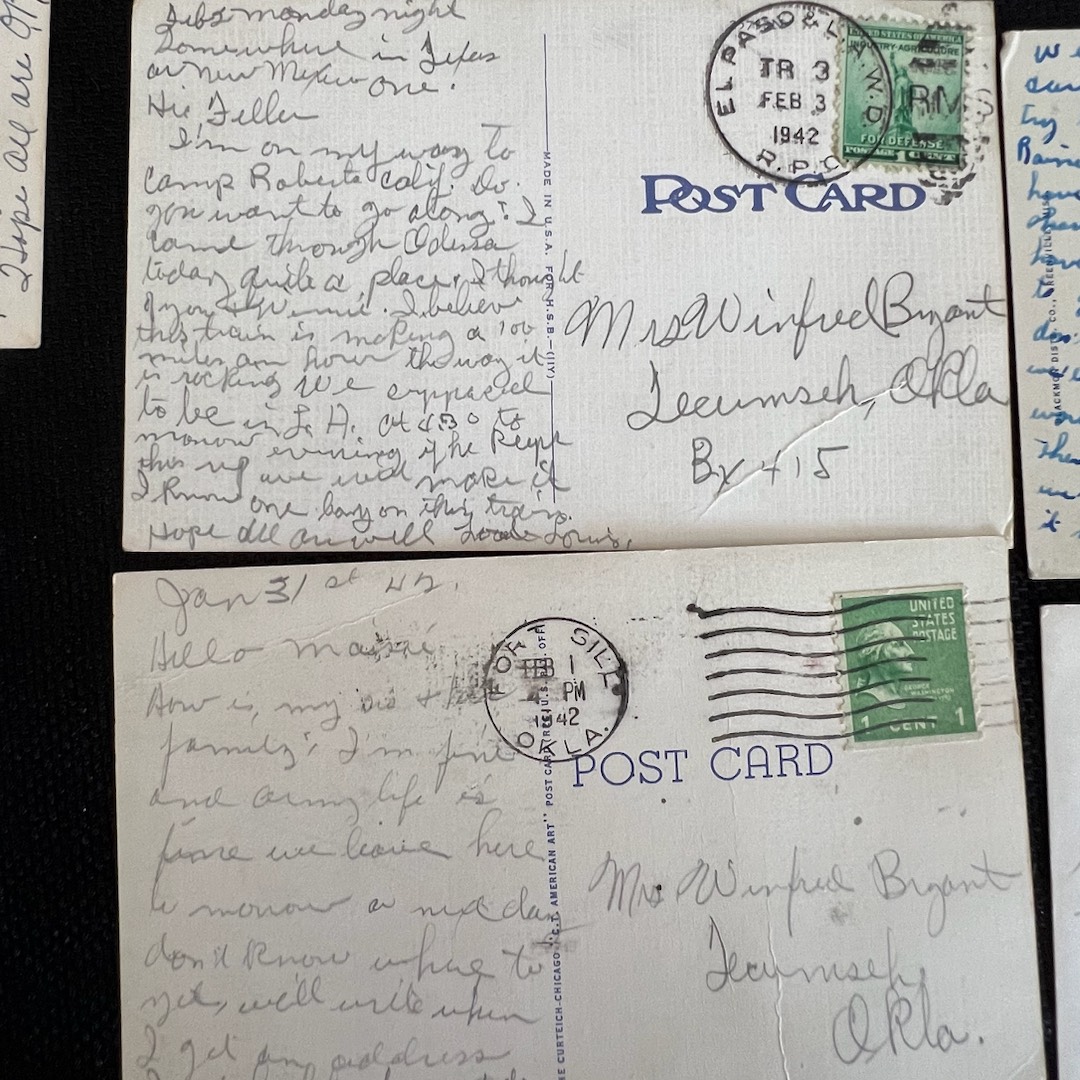 2 Hope all are
Feb 2 monday night
Somewhere in Texas
or new Mexico one.
Hi Feller
I'm on my way to
Camp Roberts calif. Do
you want to go along? I
came through Odessa
today quite a place, I thought
of you & Winnie. I believe
this train is making a 100
miles an hour the way it
is rocking We suppased
to be in L. A. at 4:30 to
morrow evening if he keeps
this up we will make it
I know one boy on this train.
Hope all are well Love Louis.
MADE IN U.S.A. FOR H.S.B.—(IIY)
EL PASO & L. W.D.
TR 3
FEB 3
1942
R.P.O.
UNITED STATES OF AMERICA
INDUSTRY-AGRICULTURE
RMS
FOR DEFENSE
POSTAGE
POST CARD
Mrs Winfred Bryant
Tecumseh, Okla
Bx 415
Jan 31 st 42.
Hello
How is my sis &
family? I'm fine
and army life is
fine we leave here
to morrow or next day
don't know where to
yet, we'll write when
I get my address
"C.T. AMERICAN ART" POST CARD (REG. U.S. PAT. OFF.)
CURTEICH-CHICAGO
FORT SILL
FEB 1
PM
1942
OKLA.
UNITED
STATES
POSTAGE
GEORGE
WASHINGTON
1 CENT 1
POST CARD
Mrs Winfred Bryant
Tecumseh,
Okla.
try
have
have
it
DIST. CO., GREENVILLE, MISS.